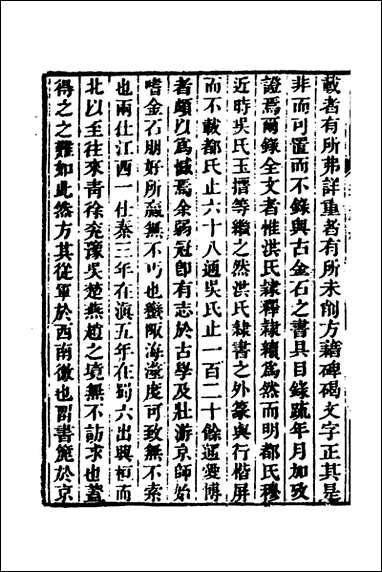 載者有所弗詳重者有所未削方藉碑碣文字正其是
非而可置而不錄與古金石之書具目錄疏年月加攷
證焉爾錄全文者惟洪氏隸釋隸續爲然而明都氏穆
近時吳氏玉搢等繼之然洪氏隸書之外篆與行楷屏
而不載都氏止六十八通吳氏止一百二十餘通愛博
者頗以爲憾焉余弱冠卽有志於古學及壯游京師始
嗜金石朋好所贏無不丐也蠻陬海澨度可致無不索
也兩仕江西一仕秦三年在滇五年在蜀六出興桓而
北以至往來靑徐兗豫吳楚燕趙之境無不訪求也蓋
得之之難如此然方其從軍於西南徼也留書簏於京